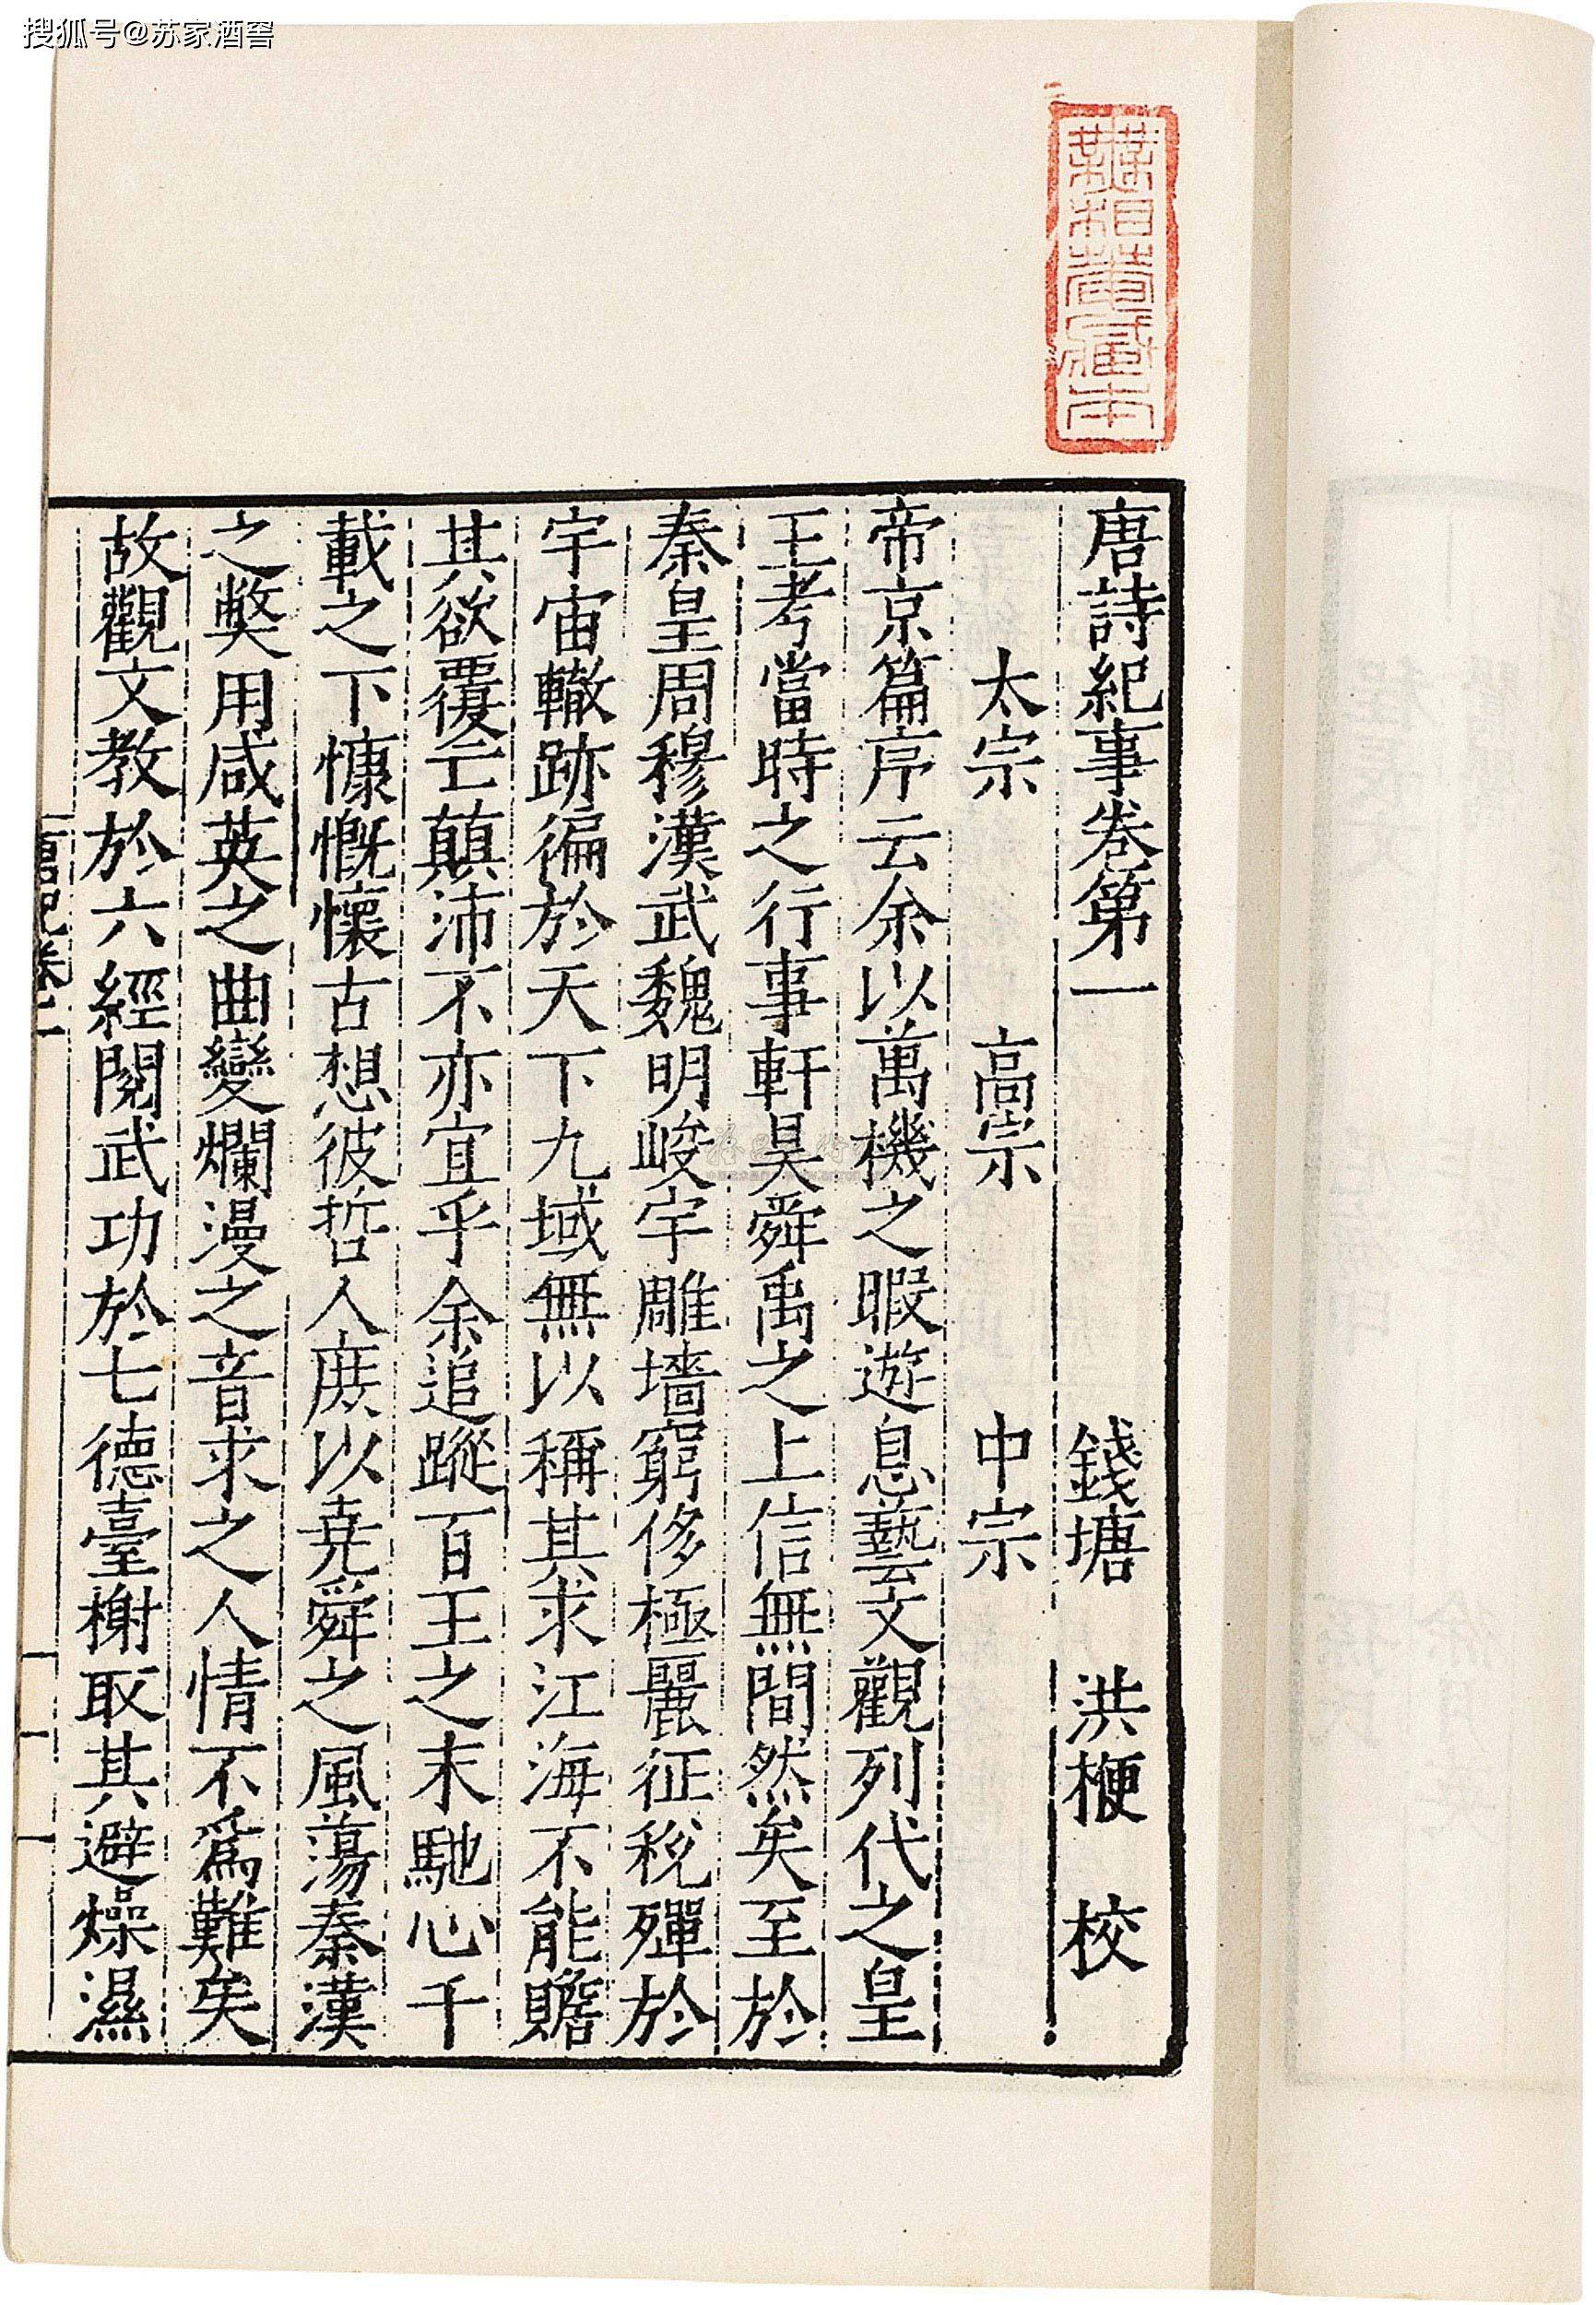 搜狐号@苏家酒窖
唐詩紀事卷第一 錢塘 洪楩 校
太宗 高宗 中宗
帝京篇序云余以萬機之暇遊息藝文觀列代之皇
王考當時之行事軒昊舜禹之上信無間然矣至於
秦皇周穆漢武魏明峻宇雕墻窮侈極麗征稅殫於
宇宙轍跡徧於天下九域無以稱其求江海不能贍
其欲覆亡顛沛不亦宜乎余追蹤百王之末馳心千
載之下慷慨懷古想彼哲人庻以堯舜之風蕩秦漢
之獘用咸英之曲變爛漫之音求之人情不爲難矣
故觀文教於六經閱武功於七德臺榭取其避燥濕